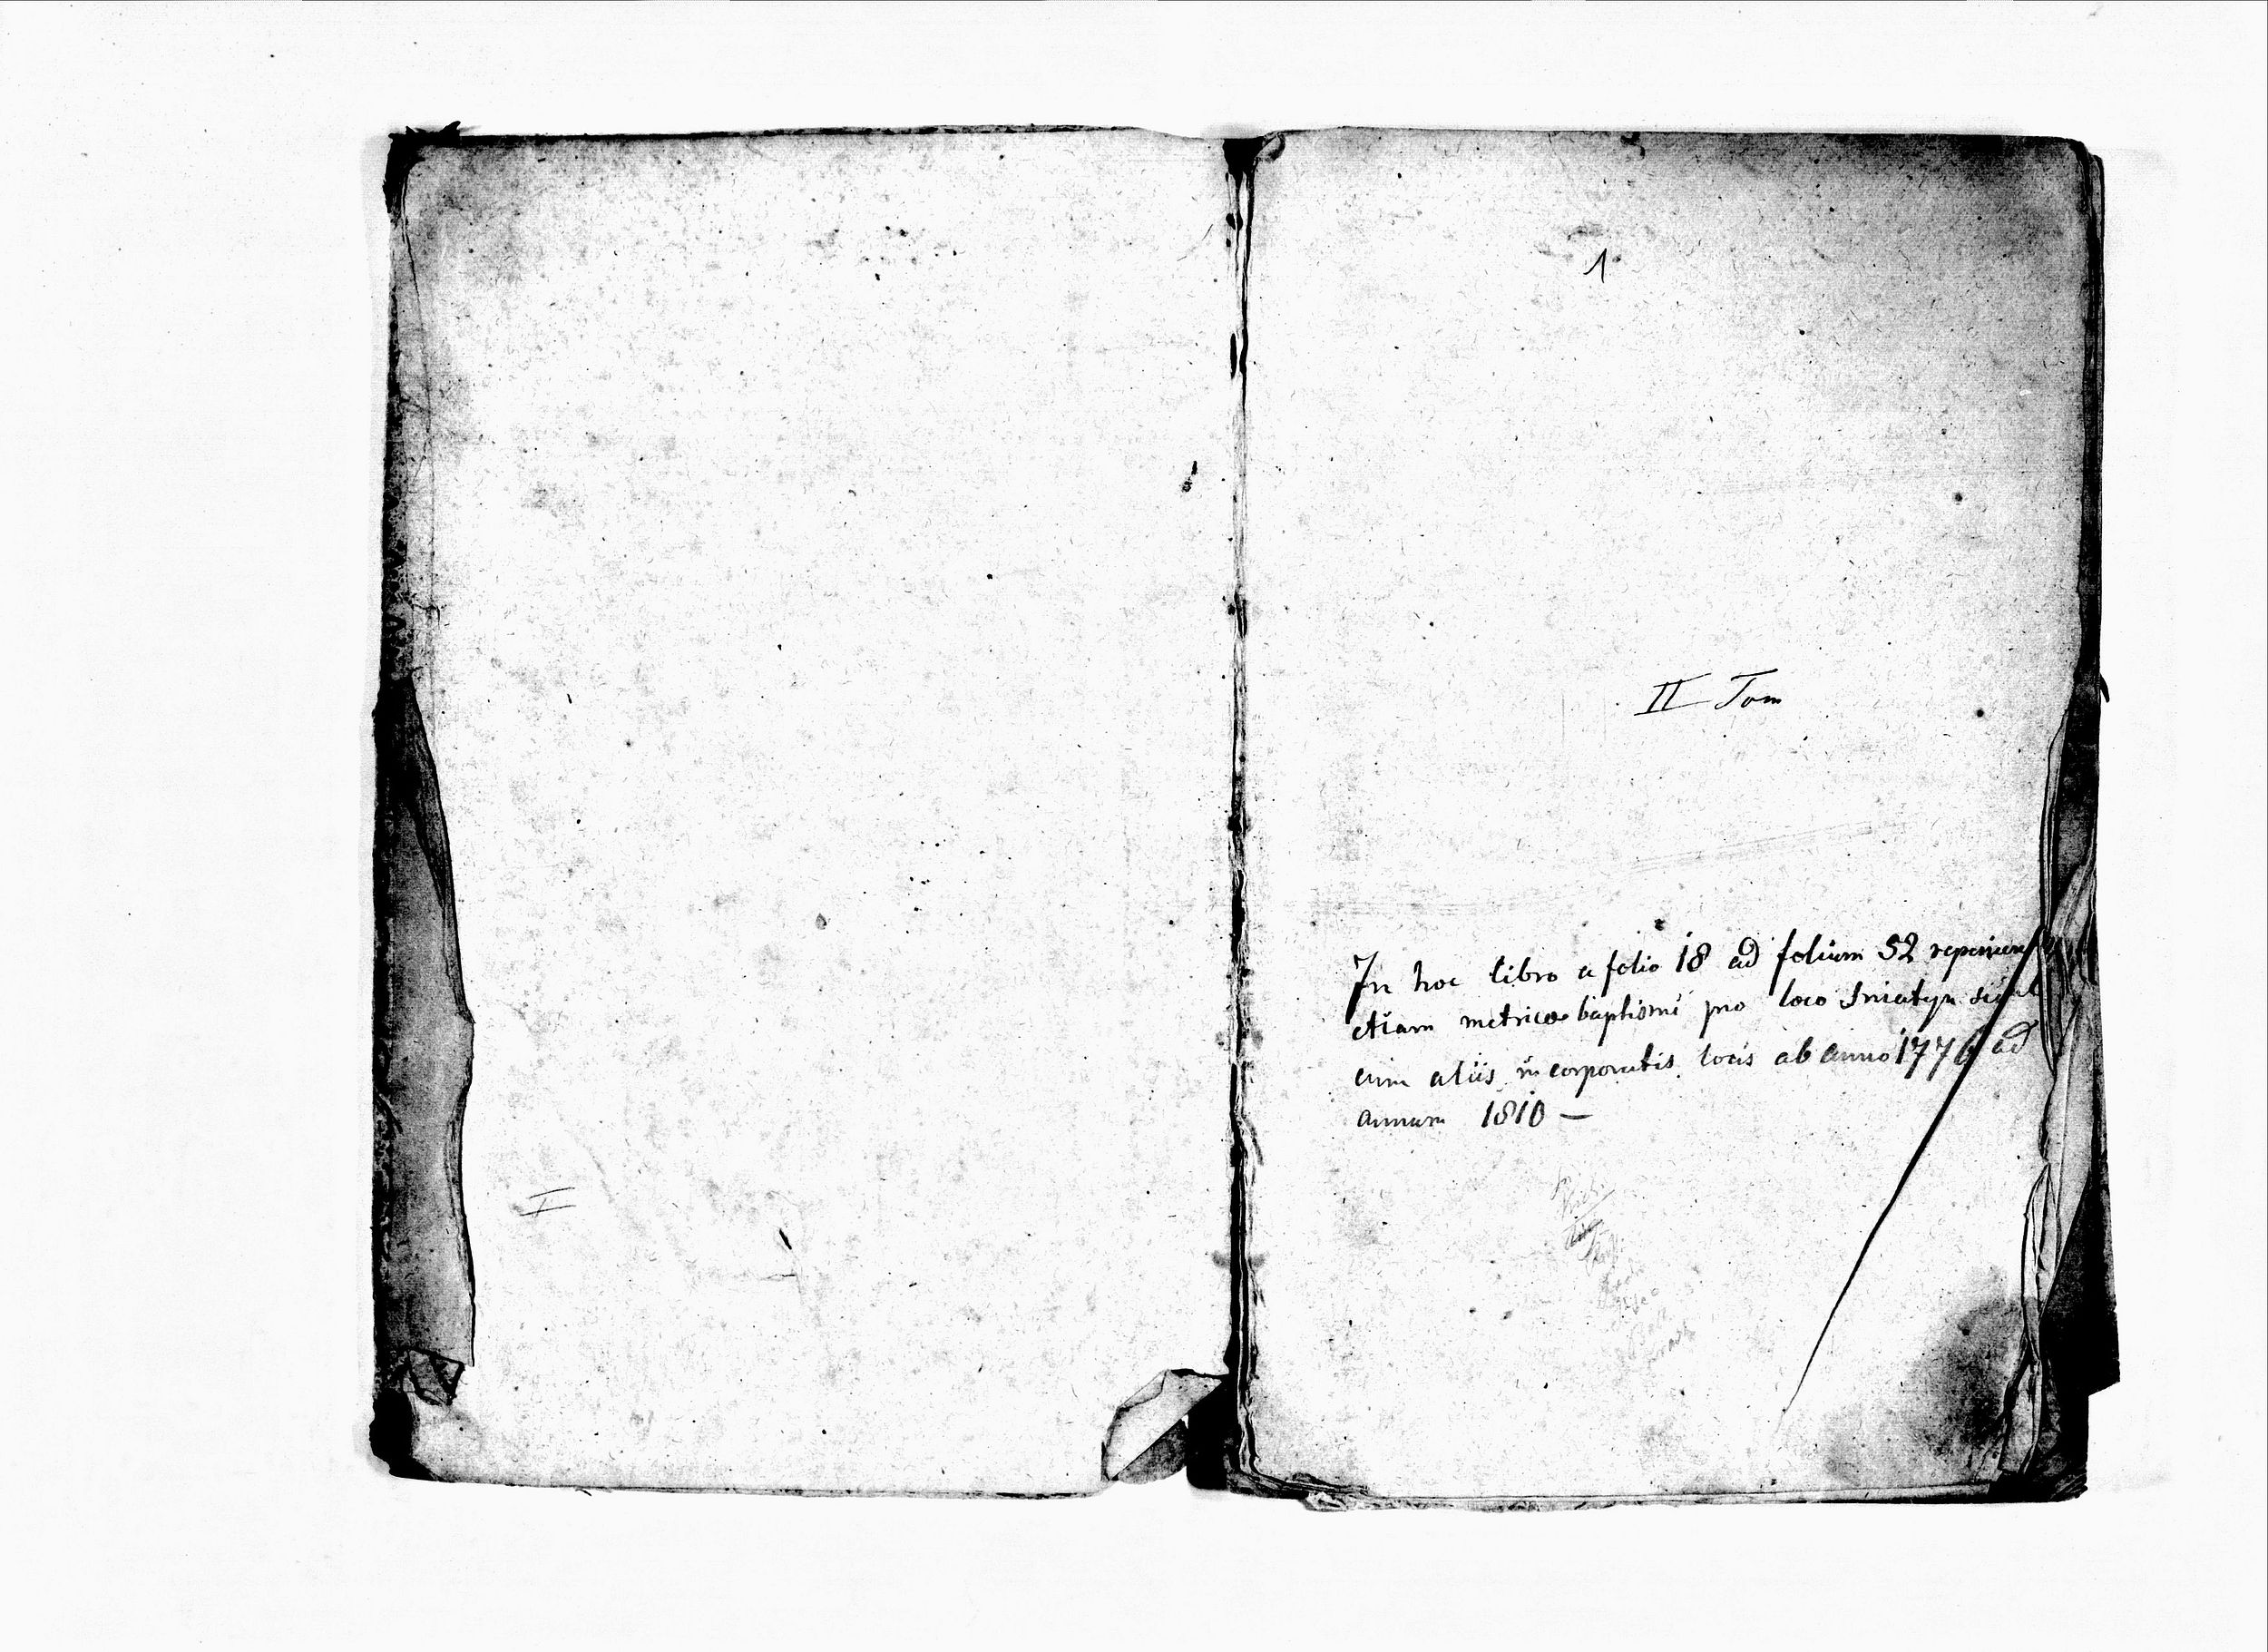 I
1
II Tom
In hoc libro a folio 18 ad folium 52 reperiuntur
etiam metricae baptismi pro loco Sniatyn simul
cum aliis incorporatis locis ab anno 1776 ad
annum 1810 —